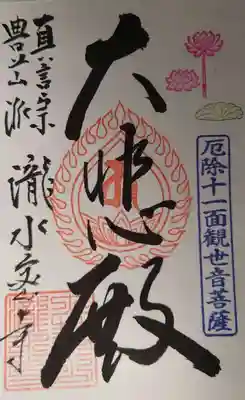 厄除十一面觀世音菩薩
大悲殿
真言宗
豊山派
瀧水
寺